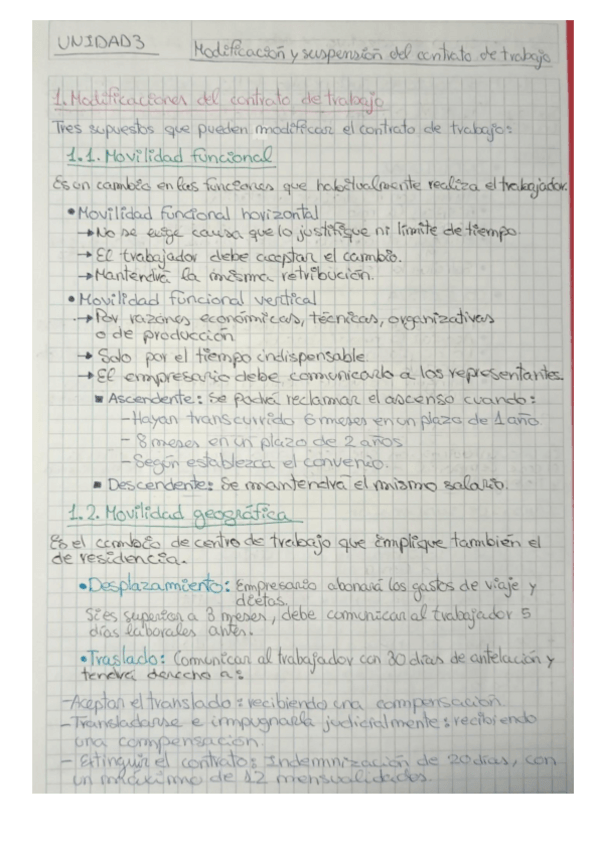 UNIDAD 3
Modificación y suspensión del contrato de trabajo
1. Modificaciones del contrato de trabajo
Tres supuestos que pueden modificar el contrato de trabajo:
1.1. Movilidad funcional
Es un cambio en las funciones que habitualmente realiza el trabajador.
• Movilidad funcional horizontal
→ No se exige causa que lo justifique ni límite de tiempo.
→ El trabajador debe aceptar el cambio.
→ Mantendrá la misma retribución.
• Movilidad funcional vertical
→ Por razones económicas, técnicas, organizativas
o de producción
→ Solo por el tiempo indispensable.
→ El empresario debe comunicarlo a los representantes.
▪ Ascendente: Se podrá reclamar el ascenso cuando:
- Hayan transcurrido 6 meses en un plazo de 1 año.
- 8 meses en un plazo de 2 años
- Según establezca el convenio.
▪ Descendente: Se mantendrá el mismo salario.
1.2. Movilidad geográfica
Es el cambio de centro de trabajo que implique también el
de residencia.
• Desplazamiento: Empresario abonará los gastos de viaje y
dietas.
Si es superior a 3 meses, debe comunicar al trabajador 5
días laborales antes.
• Traslado: Comunicar al trabajador con 30 días de antelación y
tendrá derecho a:
- Aceptar el translado: recibiendo una compensación.
- Transladarse e impugnarla judicialmente: recibiendo
una compensación.
- Extinguir el contrato: Indemnización de 20 días, con
un máximo de 12 mensualidades.